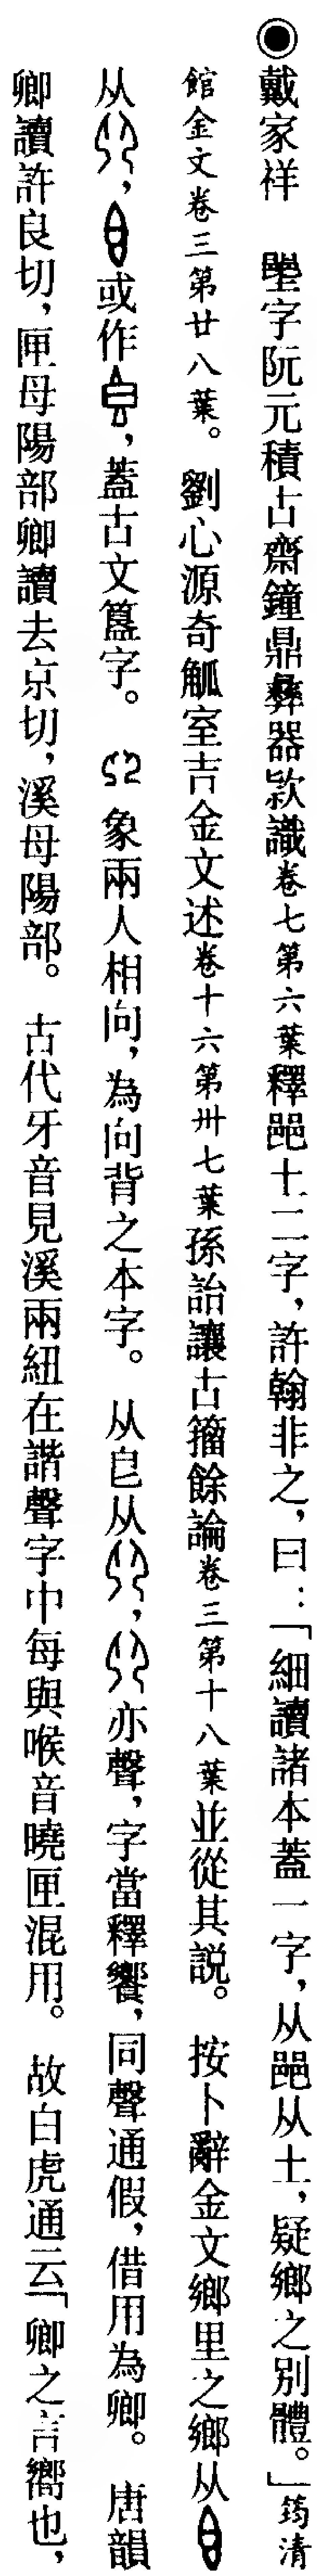 ◉戴家祥　字阮元積古齋鐘鼎彝器款識卷七第六葉釋十二字，許翰非之，曰：「細讀諸本蓋一字，从从土，疑鄉之別體。」筠清
館金文卷三第廿八葉。劉心源奇觚室吉金文述卷十六第卅七葉孫詒讓古籀餘論卷三第十八葉並從其説。按卜辭金文鄉里之鄉从
从，或作，蓋古文簋字。象兩人相向，為向背之本字。从皀从，亦聲，字當釋饗，同聲通假，借用為卿。唐韻
卿讀許良切，匣母陽部卿讀去京切，溪母陽部。古代牙音見溪兩紐在諧聲字中每與喉音曉匣混用。故白虎通云「卿之言嚮也，